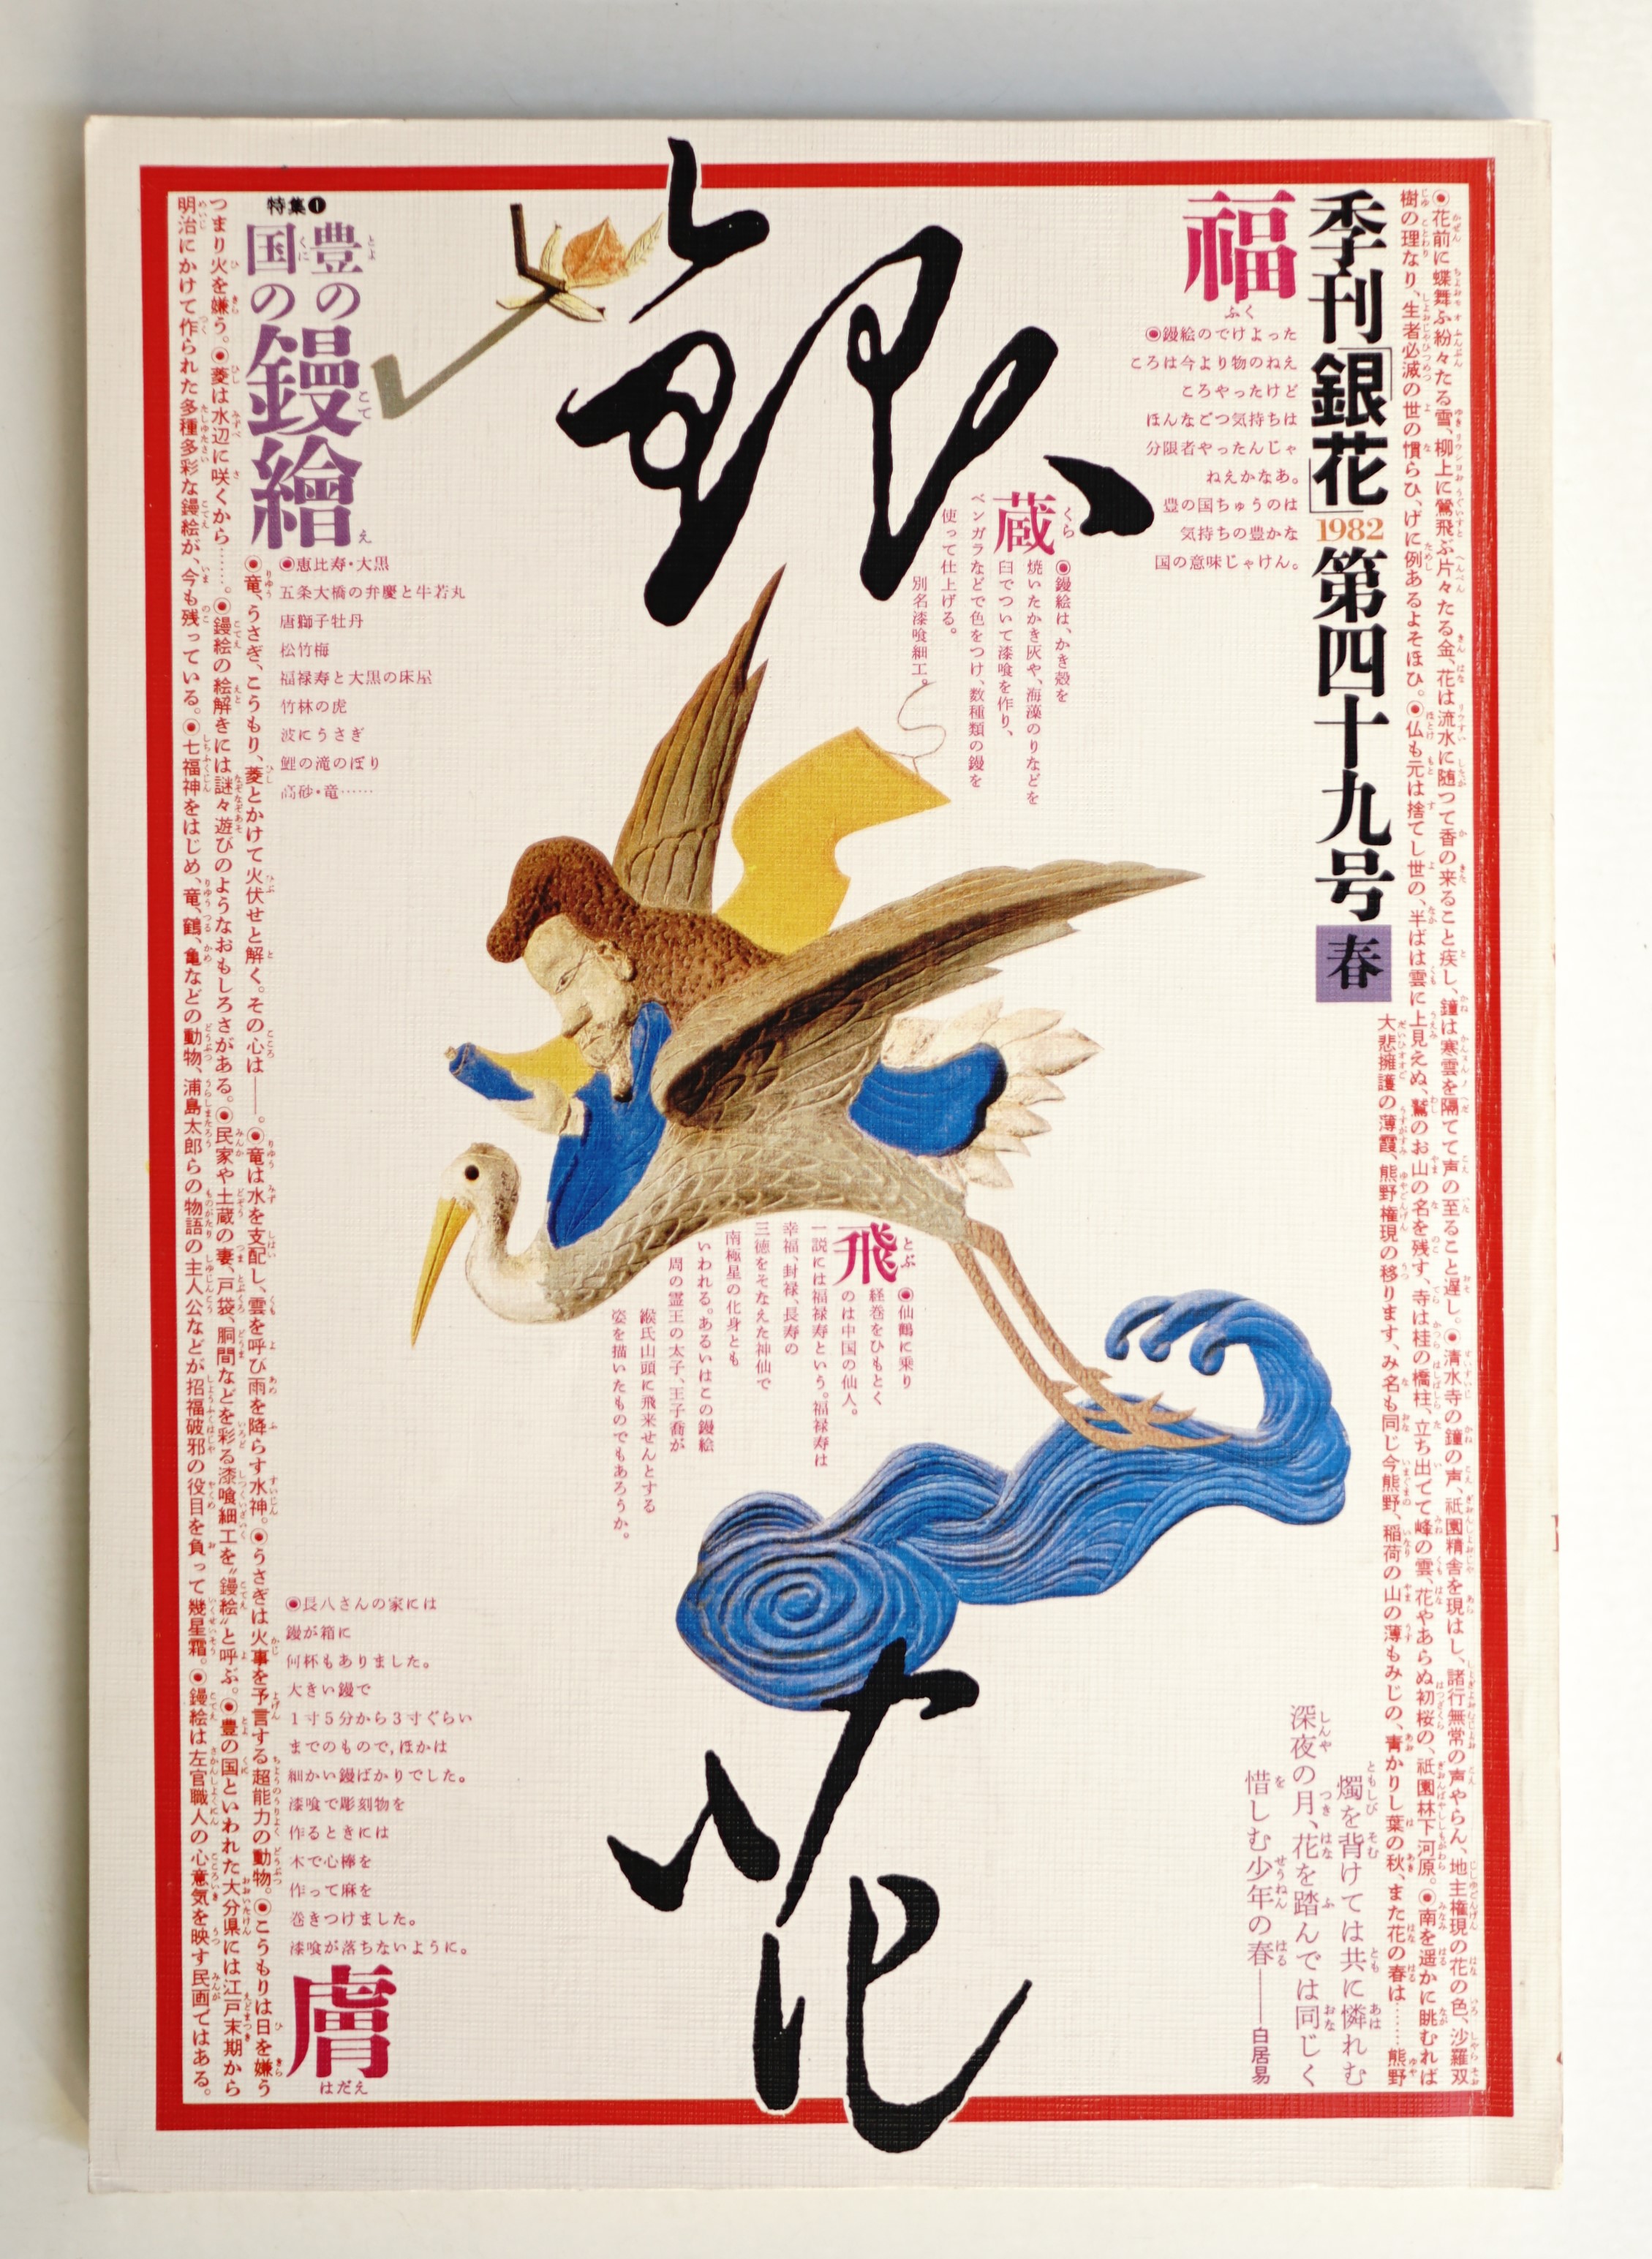 ◉花前に蝶舞ふ紛々たる雪、柳上に鶯飛ぶ片々たる金、花は流水に随つて香の来ること疾し、鐘は寒雲を隔てて声の至ること遅し。◉清水寺の鐘の声、祇園精舎を現はし、諸行無常の声やらん、地主権現の花の色、沙羅双
樹の理なり、生者必滅の世の慣らひ、げに例あるよそほひ。◉仏も元は捨てし世の、半ばは雲に上見えぬ、鷲のお山の名を残す、寺は桂の橋柱、立ち出でて峰の雲、花やあらぬ初桜の、祇園林下河原。◉南を遥かに眺むれば
大悲擁護の薄霞、熊野権現の移ります、み名も同じ今熊野、稲荷の山の薄もみじの、青かりし葉の秋、また花の春は……熊野
季刊「銀花」1982第四十九号 春
福
ふく
◉鏝絵のでけよった
ころは今より物のねえ
ころやったけど
ほんなごつ気持ちは
分限者やったんじゃ
ねえかなあ。
豊の国ちゅうのは
気持ちの豊かな
国の意味じゃけん。
銀花
蔵
くら
◉鏝絵は、かき殻を
焼いたかき灰や、海藻のりなどを
臼でついて漆喰を作り、
ベンガラなどで色をつけ、数種類の鏝を
使って仕上げる。
別名漆喰細工。
飛
とぶ
◉仙鶴に乗り
経巻をひもとく
のは中国の仙人。
一説には福禄寿という。福禄寿は
幸福、封禄、長寿の
三徳をそなえた神仙で
南極星の化身とも
いわれる。あるいはこの鏝絵
周の霊王の太子、王子喬が
緱氏山頭に飛来せんとする
姿を描いたものでもあろうか。
燭を背けては共に憐れむ
深夜の月、花を踏んでは同じく
惜しむ少年の春——白居易
特集❶
豊の
国の
鏝繪
こてえ
◉恵比寿・大黒
五条大橋の弁慶と牛若丸
唐獅子牡丹
松竹梅
福禄寿と大黒の床屋
竹林の虎
波にうさぎ
鯉の滝のぼり
高砂・竜……
◉竜、うさぎ、こうもり、菱とかけて火伏せと解く。その心は——。◉竜は水を支配し、雲を呼び雨を降らす水神。◉うさぎは火事を予言する超能力の動物。◉こうもりは日を嫌う
つまり火を嫌う。◉菱は水辺に咲くから……。◉鏝絵の絵解きには謎々遊びのようなおもしろさがある。◉民家や土蔵の妻、戸袋、胴間などを彩る漆喰細工を〝鏝絵〟と呼ぶ。◉豊の国といわれた大分県には江戸末期から
明治にかけて作られた多種多彩な鏝絵が、今も残っている。◉七福神をはじめ、竜、鶴、亀などの動物、浦島太郎らの物語の主人公などが招福破邪の役目を負って幾星霜。◉鏝絵は左官職人の心意気を映す民画ではある。
◉長八さんの家には
鏝が箱に
何杯もありました。
大きい鏝で
1寸5分から3寸ぐらい
までのもので,ほかは
細かい鏝ばかりでした。
漆喰で彫刻物を
作るときには
木で心棒を
作って麻を
巻きつけました。
漆喰が落ちないように。
膚
はだえ